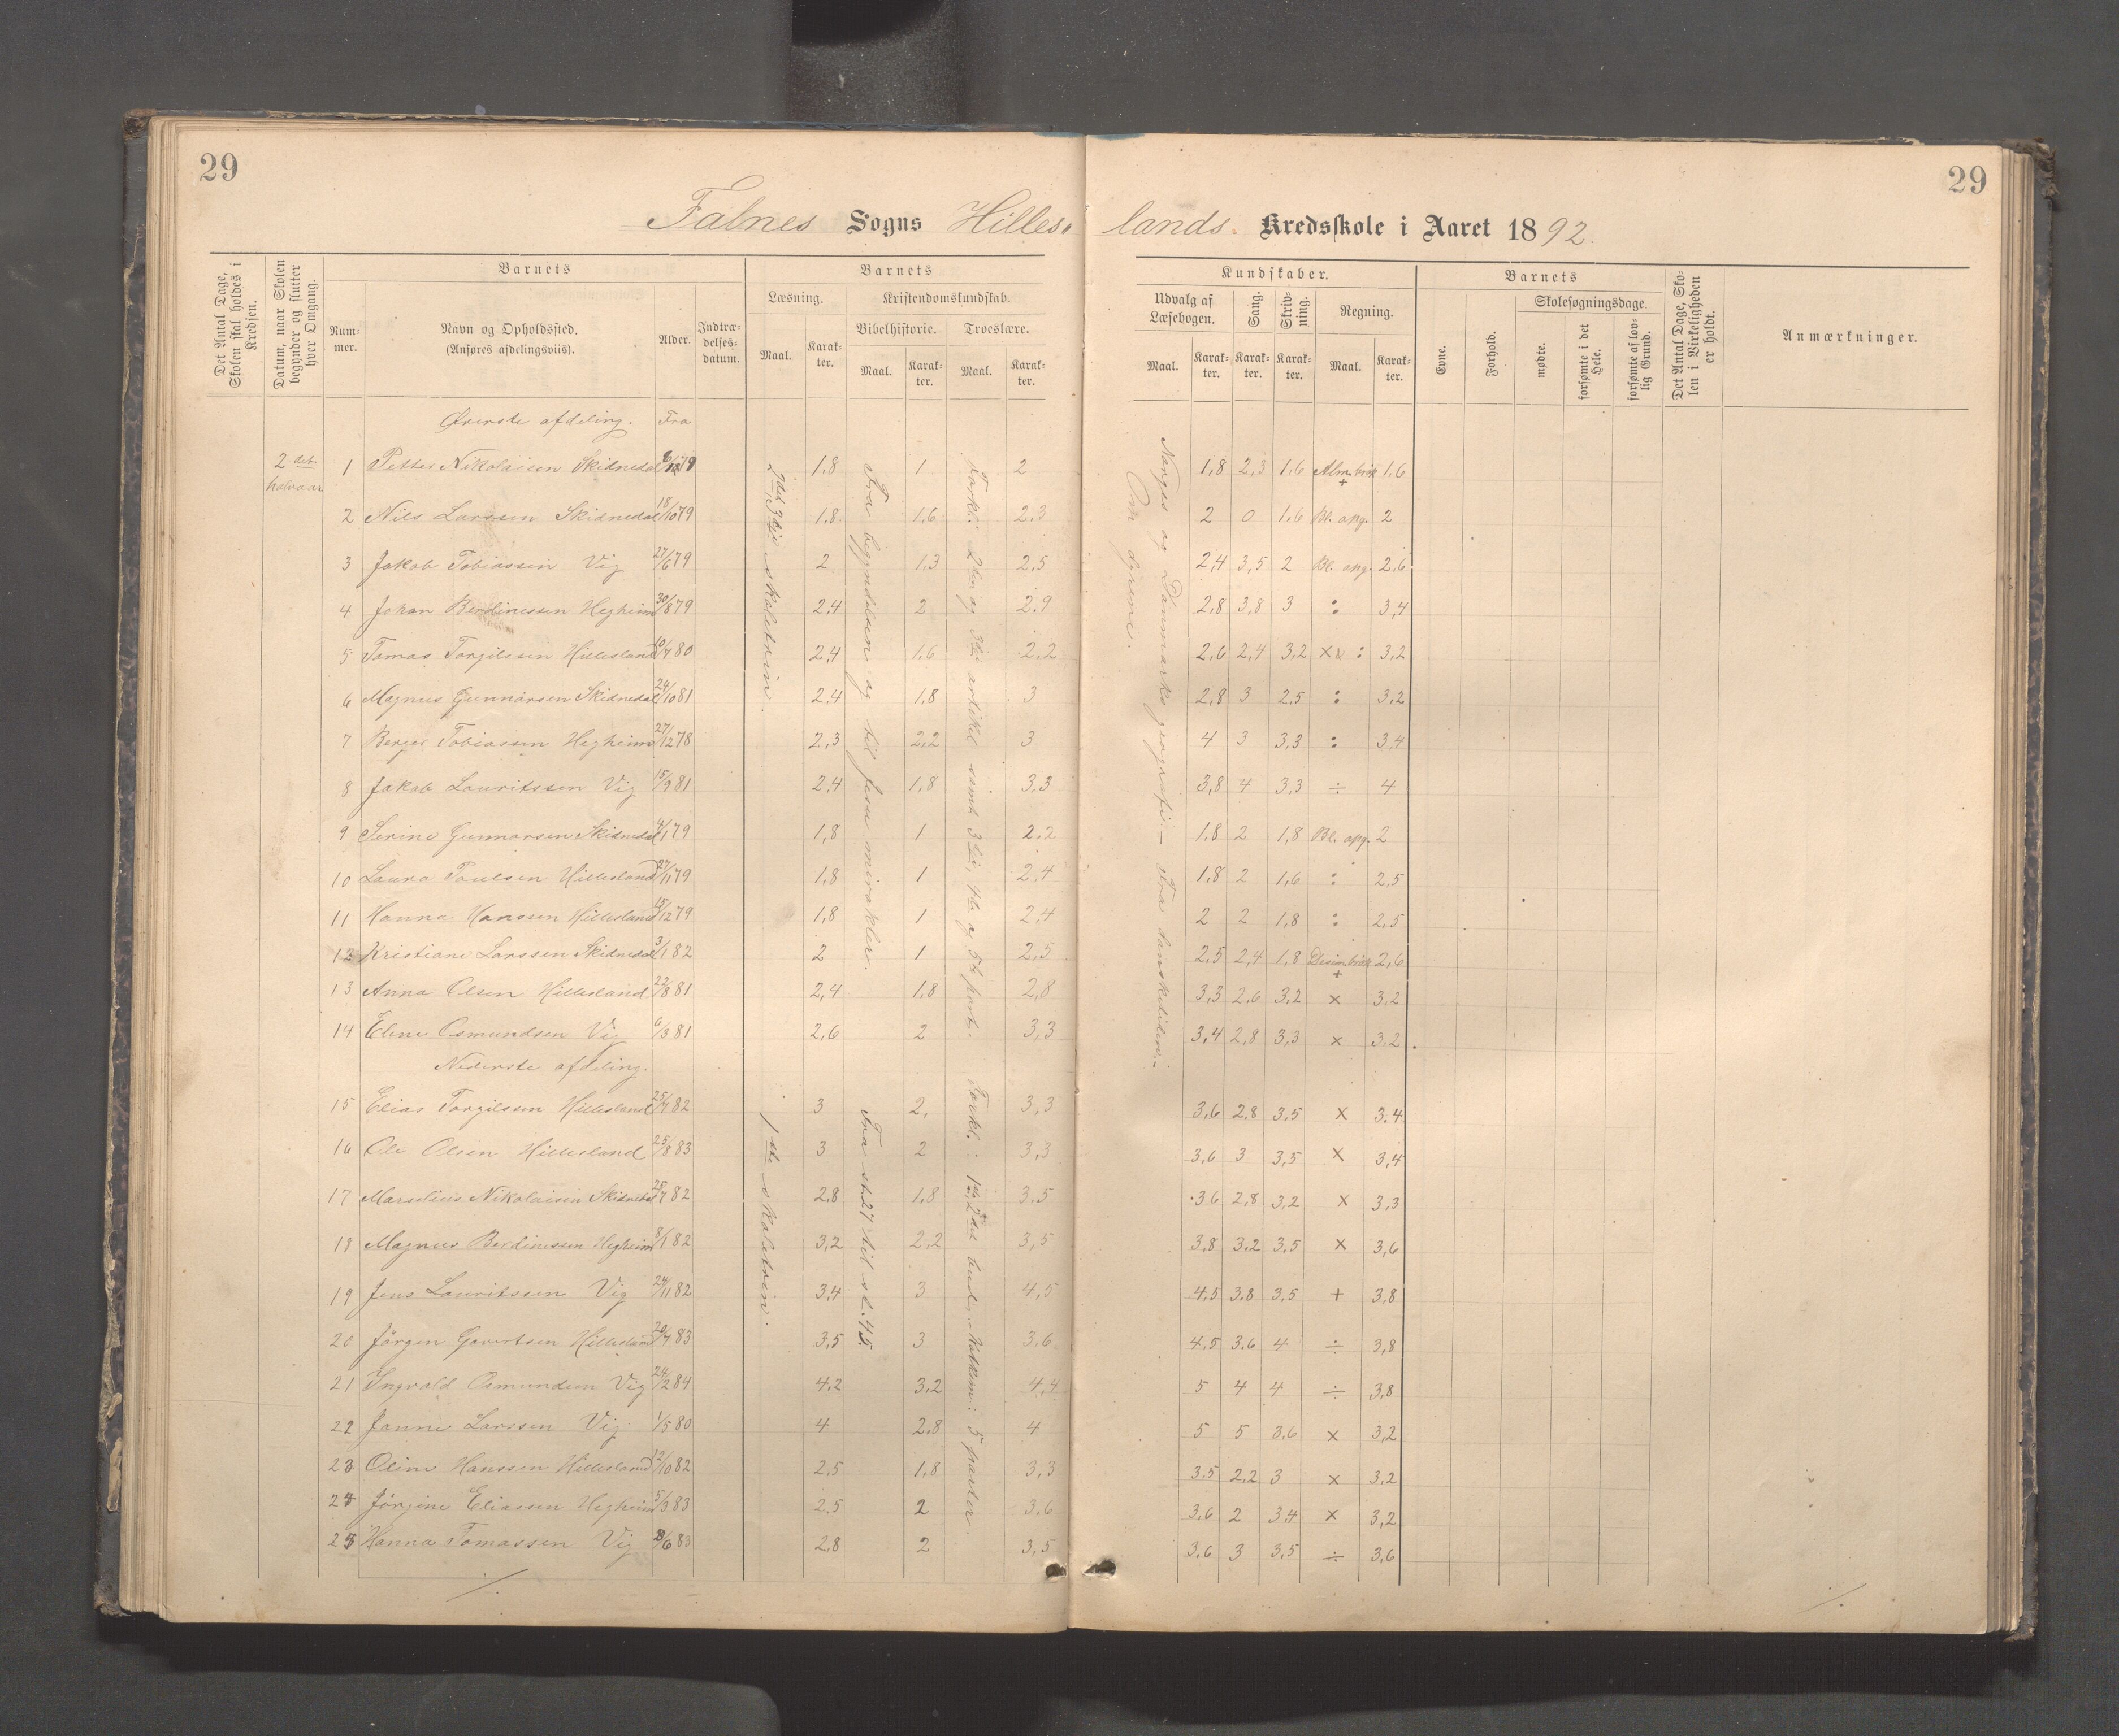 29
29
Falnes Sogns Hilles- lands Kredsskole i Aaret 1892.
Det Antal Dage, Skolen skal holdes i Kredsen.
Datum, naar Skolen begynder og slutter hver Omgang.
Barnets
Nummer.
Navn og Opholdssted. (Anføres afdelingsviis).
Alder.
Indtrædelsesdatum.
Barnets
Læsning.
Maal.
Karakter.
Kristendomskundskab.
Bibelhistorie.
Maal.
Karakter.
Troeslære.
Maal.
Karakter.
Kundskaber.
Udvalg af Læsebogen.
Maal.
Karakter.
Sang.
Karakter.
Skrivning.
Karakter.
Regning.
Maal.
Karakter.
Barnets
Evne.
Forhold.
Skolesøgningsdage.
mødte.
forsømte i det Hele.
forsømte af lovlig Grund.
Det Antal Dage, Skolen i Virkeligheden er holdt.
Anmærkninger.
Øverste afdeling. Fra
2det halvaar
2det, 3die skoletrin.
Fra begyndelsen og til Jesu mirakler.
Forkl: 2den og 3die artikel samt 3die, 4de og 5te part.
Norges og Danmarks geografi. — Fra dansketiden. —
Om dyrene.
1 Petter Nikolaisen Skidnedal 1,8 1 2 1,8 2,3 1,6 Alm. brøk + 1,6
2 Nils Larssen Skidnedal 18/10 79 1,8 1,6 2,3 2 0 1,6 Bl. opg. 2
3 Jakob Tobiassen Vig 27/6 79 2 1,3 2,5 2,4 3,5 2 Bl. opg. 2,6
4 Johan Berdinessen Hegheim 30/8 79 2,4 2 2,9 2,8 3,8 3 : 3,4
5 Tomas Torgilssen Hillesland 10/7 80 2,4 1,6 2,2 2,6 2,4 3,2 : 3,2
6 Magnus Gunnarsen Skidnedal 24/10 81 2,4 1,8 3 2,8 3 2,5 : 3,2
7 Berger Tobiassen Hegheim 27/12 78 2,3 2,2 3 4 3 3,3 : 3,4
8 Jakob Lauritssen Vig 15/9 81 2,4 1,8 3,3 3,8 4 3,3 ÷ 4
9 Serine Gunnarsen Skidnedal 4/1 79 1,8 1 2,2 1,8 2 1,8 Bl. opg. 2
10 Laura Poulsen Hillesland 27/11 79 1,8 1 2,4 1,8 2 1,6 : 2,5
11 Hanna Hanssen Hillesland 15/12 79 1,8 1 2,4 2 2 1,8 : 2,5
12 Kristiane Larssen Skidnedal 3/1 82 2 1 2,5 2,5 2,4 1,8 Desim. brøk + 2,6
13 Anna Olsen Hillesland 22/8 81 2,4 1,8 2,8 3,3 2,6 3,2 × 3,2
14 Eline Osmundsen Vig 6/3 81 2,6 2 3,3 3,4 2,8 3,3 × 3,2
Nederste afdeling.
1ste skoletrin.
Fra st. 27 til st. 45.
Forkl.: 1ste, 2det bud. - Katekism: 5 parter.
15 Elias Torgilssen Hillesland 25/7 82 3 2, 3,3 3,6 2,8 3,5 × 3,4
16 Ole Olsen Hillesland 25/8 83 3 2 3,3 3,6 3 3,5 × 3,4
17 Marselius Nikolaisen Skidnedal 28/7 82 2,8 1,8 3,5 3,6 2,8 3,2 × 3,3
18 Magnus Berdinessen Hegheim 8/1 82 3,2 2,2 3,5 3,8 3,2 3,5 × 3,6
19 Jens Lauritssen Vig 24/11 82 3,4 3 4,5 4,5 3,8 3,5 + 3,8
20 Jörgen Govertsen Hillesland 20/7 83 3,5 3 3,6 4,5 3,6 4 ÷ 3,8
21 Ingvald Osmundsen Vig 24/2 84 4,2 3,2 4,4 5 4 4 ÷ 3,8
22 Janne Larssen Vig 1/5 80 4 2,8 4 5 5 3,6 × 3,2
23 Oline Hanssen Hillesland 12/10 82 2,5 1,8 3,3 3,5 2,2 3 × 3,2
24 Jörgine Eliassen Hegheim 5/3 83 2,5 2 3,6 3,6 2 3,4 × 3,2
25 Hanna Tomassen Vig 8/6 83 2,8 2 3,5 3,6 3 3,5 ÷ 3,6